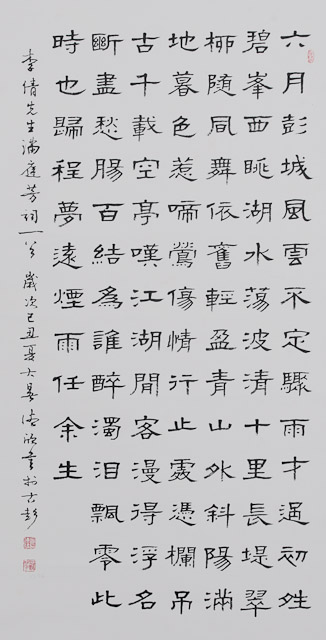 六月彭城風雲不定驟雨才過初姓
碧峯西眺湖水蕩波清十里長堤翠
柳隨風舞依舊輕盈青山外斜陽滿
地暮色惹啼鶯傷情行止處憑欄吊
古千載空亭嘆江湖閒客漫得浮名
斷盡愁腸百結為誰醉濁泪飄零此
時也歸程夢遠煙雨任余生
李倩先生滿庭芳词一首 歲次己丑夏大暑德欣書於古彭